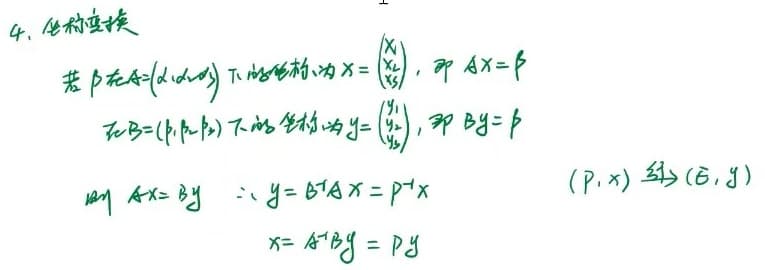 4. 坐标变换
若 β在A=(α₁α₂α₃) 下的坐标为 x=(x₁ x₂ x₃), 即 Ax=β
在B=(β₁β₂β₃) 下的坐标为 y=(y₁ y₂ y₃), 即 By=β
则 Ax=By ∴ y=B⁻¹Ax=P⁻¹x (P,x) 行→ (E,y)
x=A⁻¹By=Py